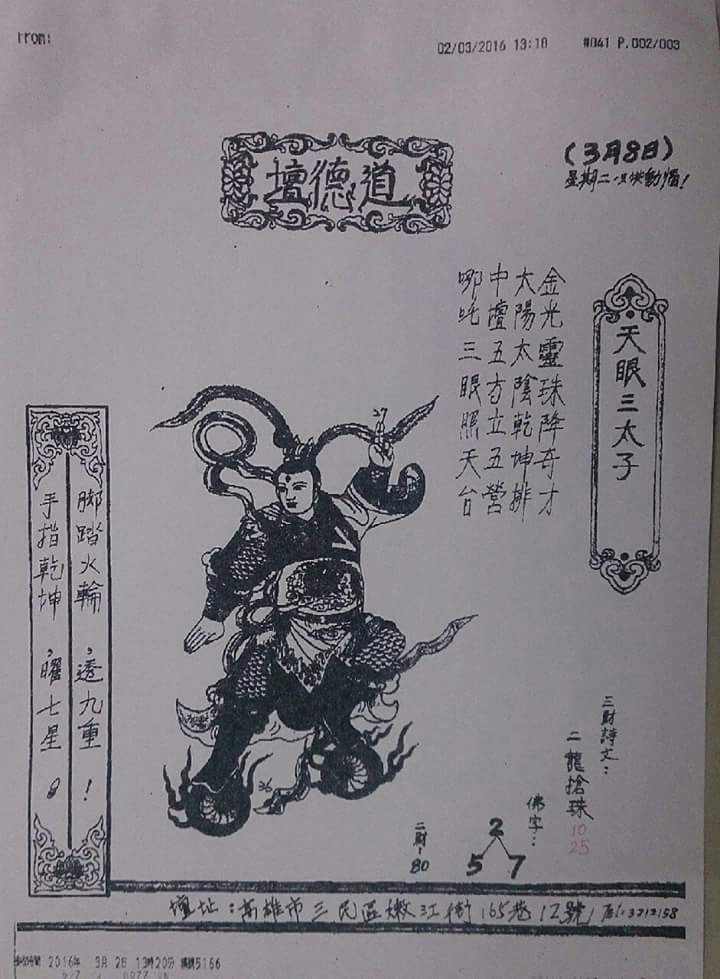 From:
02/03/2016 13:10 #041 P.002/003
道德壇
(3月8日)
星期二
天眼三太子
金光靈珠降奇才
太陽太陰乾坤排
中壇五方立五營
哪吒三眼照天台
27
36
腳踏火輪，透九重！
手指乾坤，曜七星。
三財詩文：
二龍搶珠
10
25
佛字：
2
5 7
二財-80
壇址：高雄市三民區嫩江街165巷12號
2016年 3月 2日 13時20分